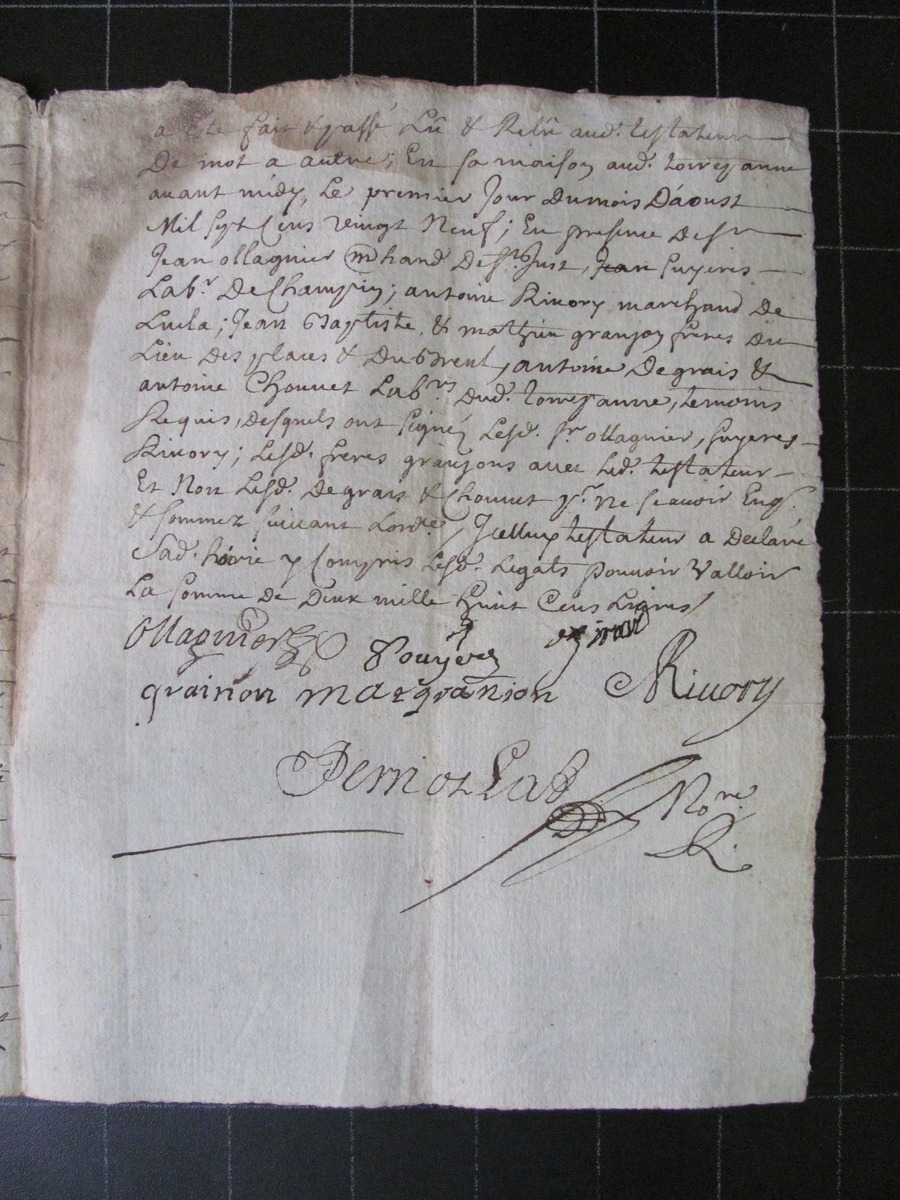 a Esté fait & passé Lû & Relû aud. testateur
De mot a autre; En sa maison aud. torrepanne
auant midy, Le premier Jour Dumois D'aoust
Mil sept Cens veingt Neuf; En presence de sr
Jean ollagnier mhand De St. Just, Jean puyeres
Labr. De Champin; antoine Riuory marchand de
Lucla; Jean Baptiste & mathieu granjon freres du
Lieu des places & Du Breul, antoine Degrais &
antoine Chouuet Labrs Dud. torrepanne, temoins
Requis, desquels ont signéz Lesd. sr. ollagnier, puyeres
Riuory; Lesd. freres granjons auec led. testateur
Et Non Lesd. Degrais & Chouuet pr. ne scauoir Enqs.
& sommez suiuant Lordce, Jcelluy testateur a Declaré
Sad. hoirie y Compris Lesd. Legats pouuoir Valloir
La somme de Deux mille huict Cens Liures
Ollagnier Pouyeres
grainon mat granion Riuory
Pernot Lab Nore. R.